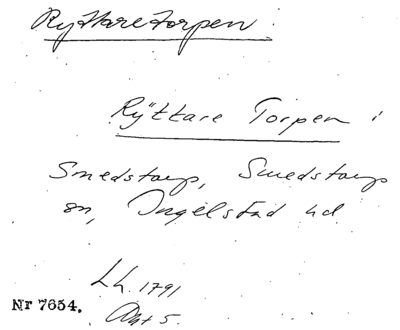 Ryttaretorpen.
Ryttare Torpen i
Smedstorp, Smedstorps
sn, Ingelstad hd
LL. 1791
Akt 5.
Nr 7654.